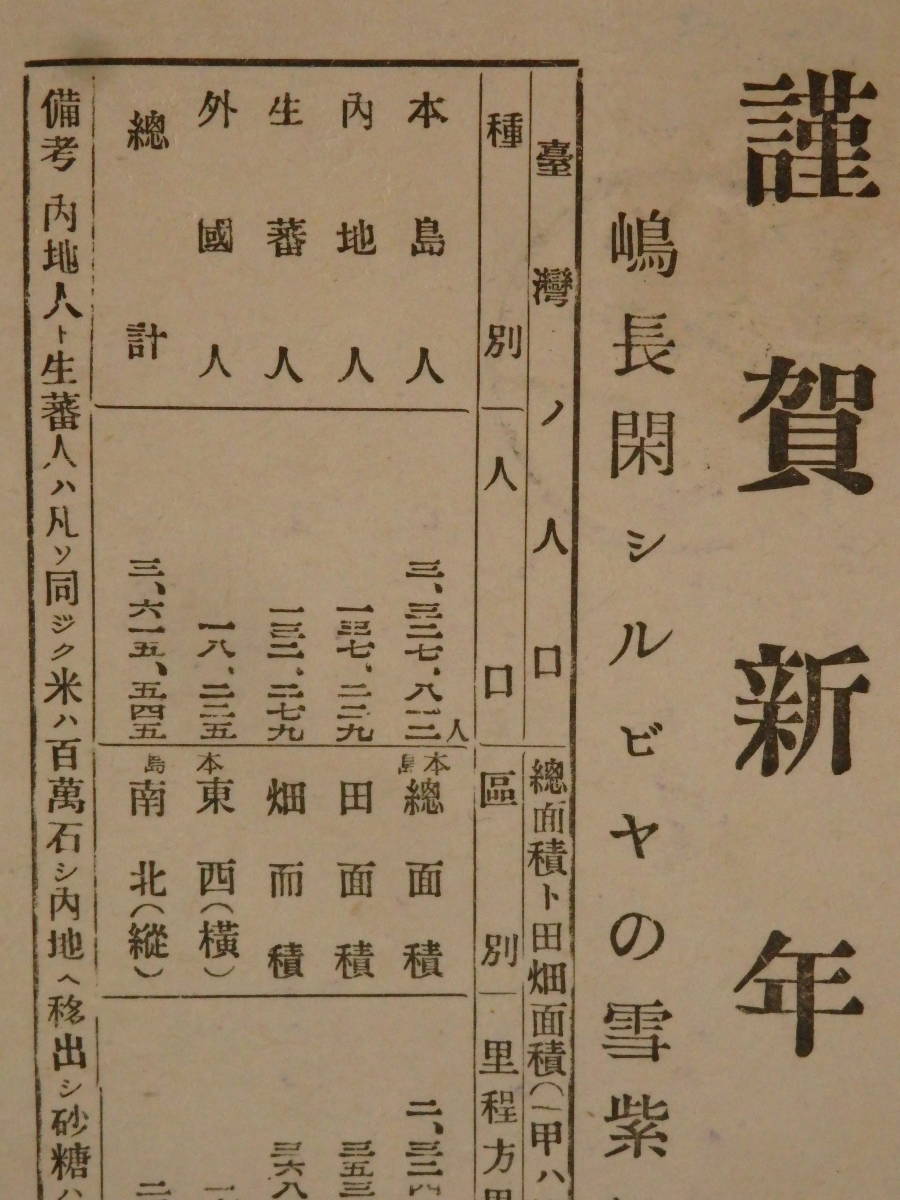 謹賀新年
嶋長閑シルビヤの雪紫
臺灣ノ人口
總面積ト田畑面積(一甲ハ
種別
人口
區別
里程方里
本島人
三、三二七、八一二人
本島總面積
二、三二四
內地人
一三七、二二九
田面積
三五三
生蕃人
一三二、二七九
畑而積
三六八
外國人
一八、二二五
本東西(橫)
總計
三、六一五、五四五
島南北(縱)
備考 內地人ト生蕃人ハ凡ソ同ジク米ハ百萬石シ內地ヘ移出シ砂糖ハ